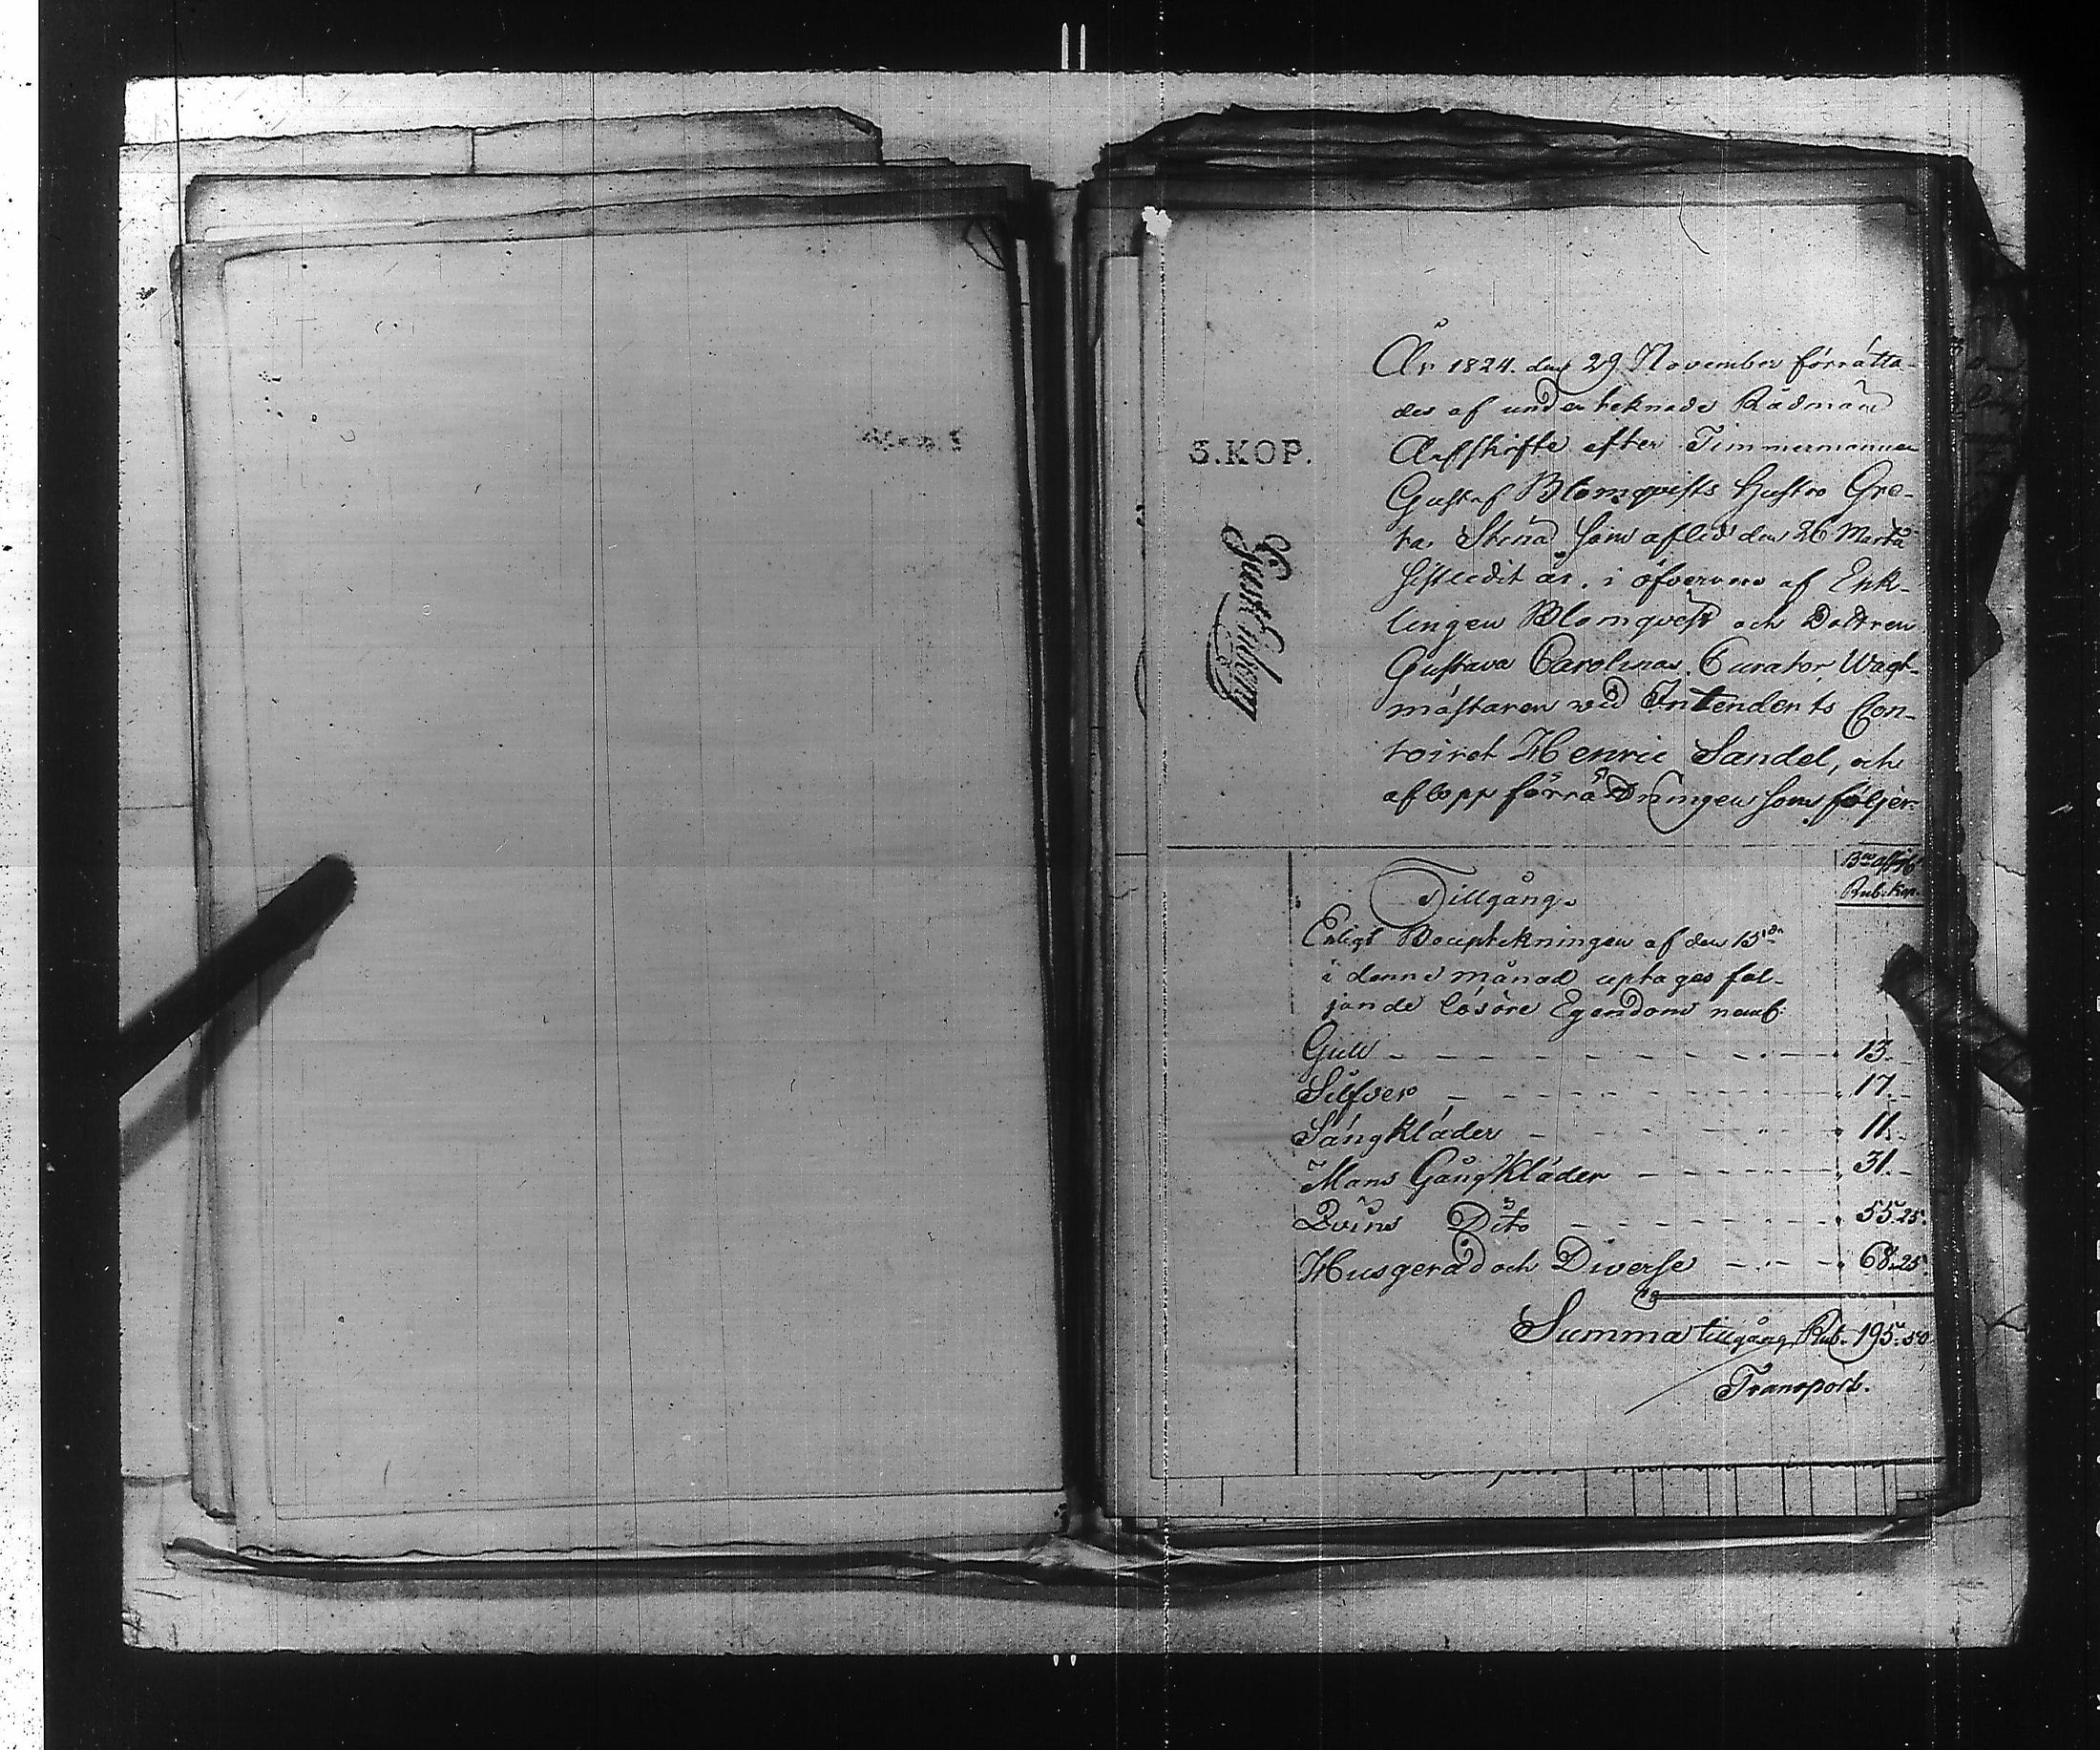 År 1824. den 29 November förrätta-
des af underteknade Rådman
Arfskifte efter Timmermannen
Gustaf Blomqvists Hustro Gre-
ta Stina som afled den 26 Martii
sistledit år, i öfvervaro af Enk-
lingen Blomqvist och Dottren
Gustava Carolinas Curator, Wagt-
mästaren vid Intendents Con-
toiret Henric Sandel, och
aflopp förrättningen som följer
5.KOP.
Tillgång.
Rub. Kop.
Enligt Bouptekningen af den 15de
i denne månad uptages föl-
jande lösöre Egendom neml:
Guld - - - 13.-
Silfver - - - 17.-
Sängkläder - - - 11.-
Mans Gångkläder - - - 31.-
Qvins Dito - - - 55.25.
Husgeråd och Diverse - - - 68.25.
Summa tillgång Rub. 195.50
Transport.